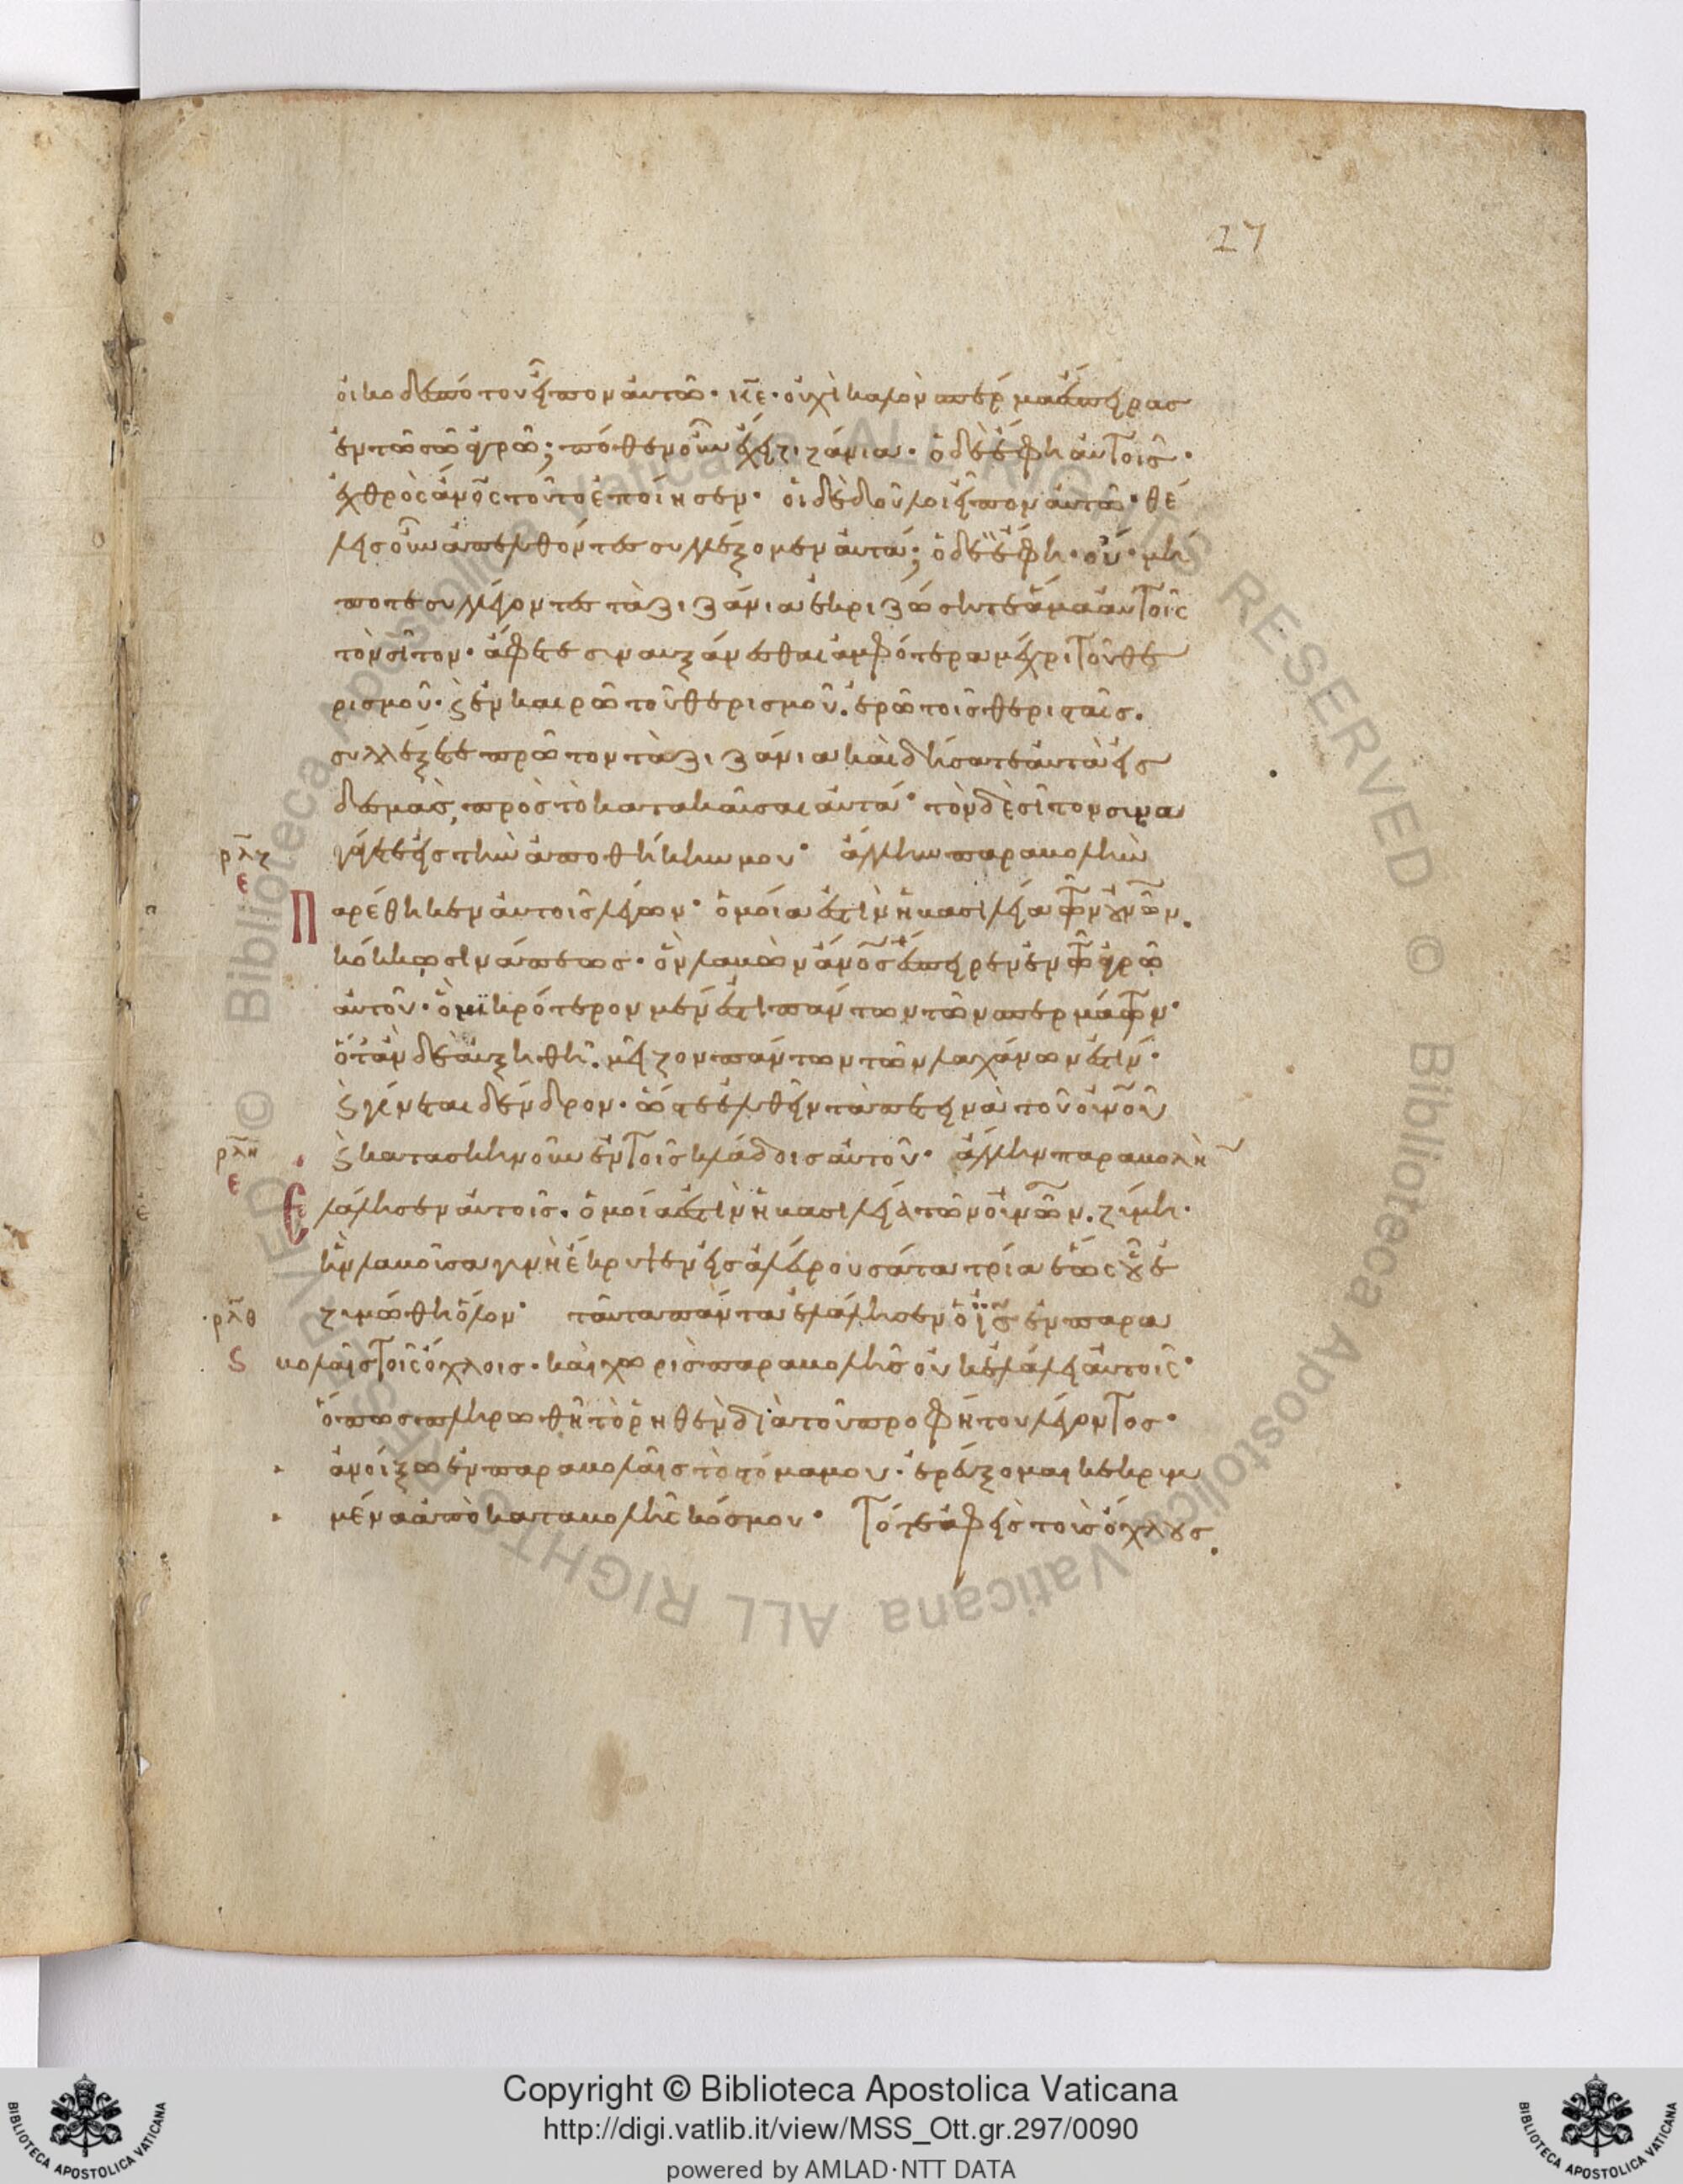 27
οἰκοδεσπότου εἶπον αὐτῶ· κ̅ε̅· οὐχὶ καλὸν σπέρμα ἔσπειρας
ἐν τῶ σῶ ἀγρῶ; πόθεν οὖν ἔχει ζιζάνια· ὁ δὲ ἔφη αὐτοῖς·
ἐχθρὸς ἄν̅ο̅ς̅ τοῦτο ἐποίησεν· οἱ δὲ δοῦλοι εἶπον αὐτῶ· θέ
λεις οὖν ἀπελθόντες συλλέξομεν αὐτά; ὁ δὲ ἔφη· οὔ· μή
ποτε συλλέγοντες τὰ ζιζάνια ἐκριζώσητε ἅμα αὐτοῖς
τὸν σῖτον· ἄφετε συναυξάνεσθαι ἀμφότερα μέχρι τοῦ θε
ρισμοῦ· ϗ ἐν καιρῶ τοῦ θερισμοῦ. ἐρῶ τοῖς θερισταῖς.
συλλέξετε πρῶτον τὰ ζιζάνια καὶ δήσατε αὐτὰ εἰς
δεσμὰς, πρὸς τὸ κατακαῦσαι αὐτά· τὸν δὲ σῖτον συνα
γάγετε εἰς τὴν ἀποθήκην μου· ἄλλην παραβολὴν
ρ̅λ̅ζ̅
ε
Παρέθηκεν αὐτοῖς λέγων· ὁμοία ἐστὶν ἡ βασιλεία τῶν οὐν̅ῶν.
κόκκω σινάπεως· ὃν λαβὼν ἄν̅ο̅ς̅ ἔσπειρεν ἐν τῶ ἀγρῶ
αὐτοῦ· ὃ μικρότερον μέν ἐστι πάντων τῶν σπερμάτων·
ὅταν δὲ αὐξηθῆ. μεῖζον πάντων τῶν λαχάνων ἐστίν·
ϗ γίνεται δένδρον· ὥστε ἐλθεῖν τὰ πετεινὰ τοῦ οὐν̅οῦ
ϗ κατασκηνοῦν ἐν τοῖς κλάδοις αὐτοῦ· ἄλλην παραβολὴν
ρ̅λ̅η̅
ε
Ἐλάλησεν αὐτοῖς. ὁμοία ἐστὶν ἡ βασιλεία τῶν οὐν̅ῶν. ζύμη·
ἣν λαβοῦσα γυνὴ ἔκρυψεν εἰς ἀλεύρου σάτα τρία ἕως οὗ ἐ
ρ̅λ̅θ̅
ζυμώθη ὅλον· ταῦτα πάντα ἐλάλησεν ὁ ι̅ς̅ ἐν παρα
ϛ
βολαῖς τοῖς ὄχλοις· καὶ χωρὶς παραβολῆς οὐκ ἐλάλει αὐτοῖς·
ὅπως πληρωθῆ τὸ ῥηθὲν διὰ τοῦ προφήτου λέγοντος·
ἀνοίξω ἐν παραβολαῖς τὸ στόμα μου· ἐρεύξομαι κεκρυμ
μένα ἀπὸ καταβολῆς κόσμου· Τότε ἀφεὶς τοὺς ὄχλους.
Copyright © Biblioteca Apostolica Vaticana
http://digi.vatlib.it/view/MSS_Ott.gr.297/0090
powered by AMLAD·NTT DATA
BIBLIOTECA APOSTOLICA VATICANA
BIBLIOTECA APOSTOLICA VATICANA
© Biblioteca Apostolica Vaticana ALL RIGHTS RESERVED © Biblioteca Apostolica Vaticana ALL RIGHTS RESERVED